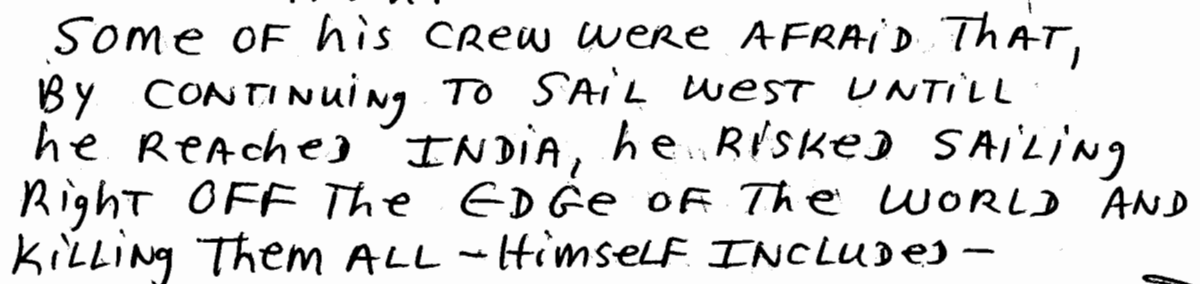 Some OF his CReW WeRe AFRAiD ThAT,
By CONTiNuiNg TO SAiL WeST UNTiLL
he ReAcheD INDiA, he RiSKeD SAiLiNg
RighT OFF The EDGe OF The WORLD AND
KiLLiNg Them ALL - HimSeLF INCLuDeD -